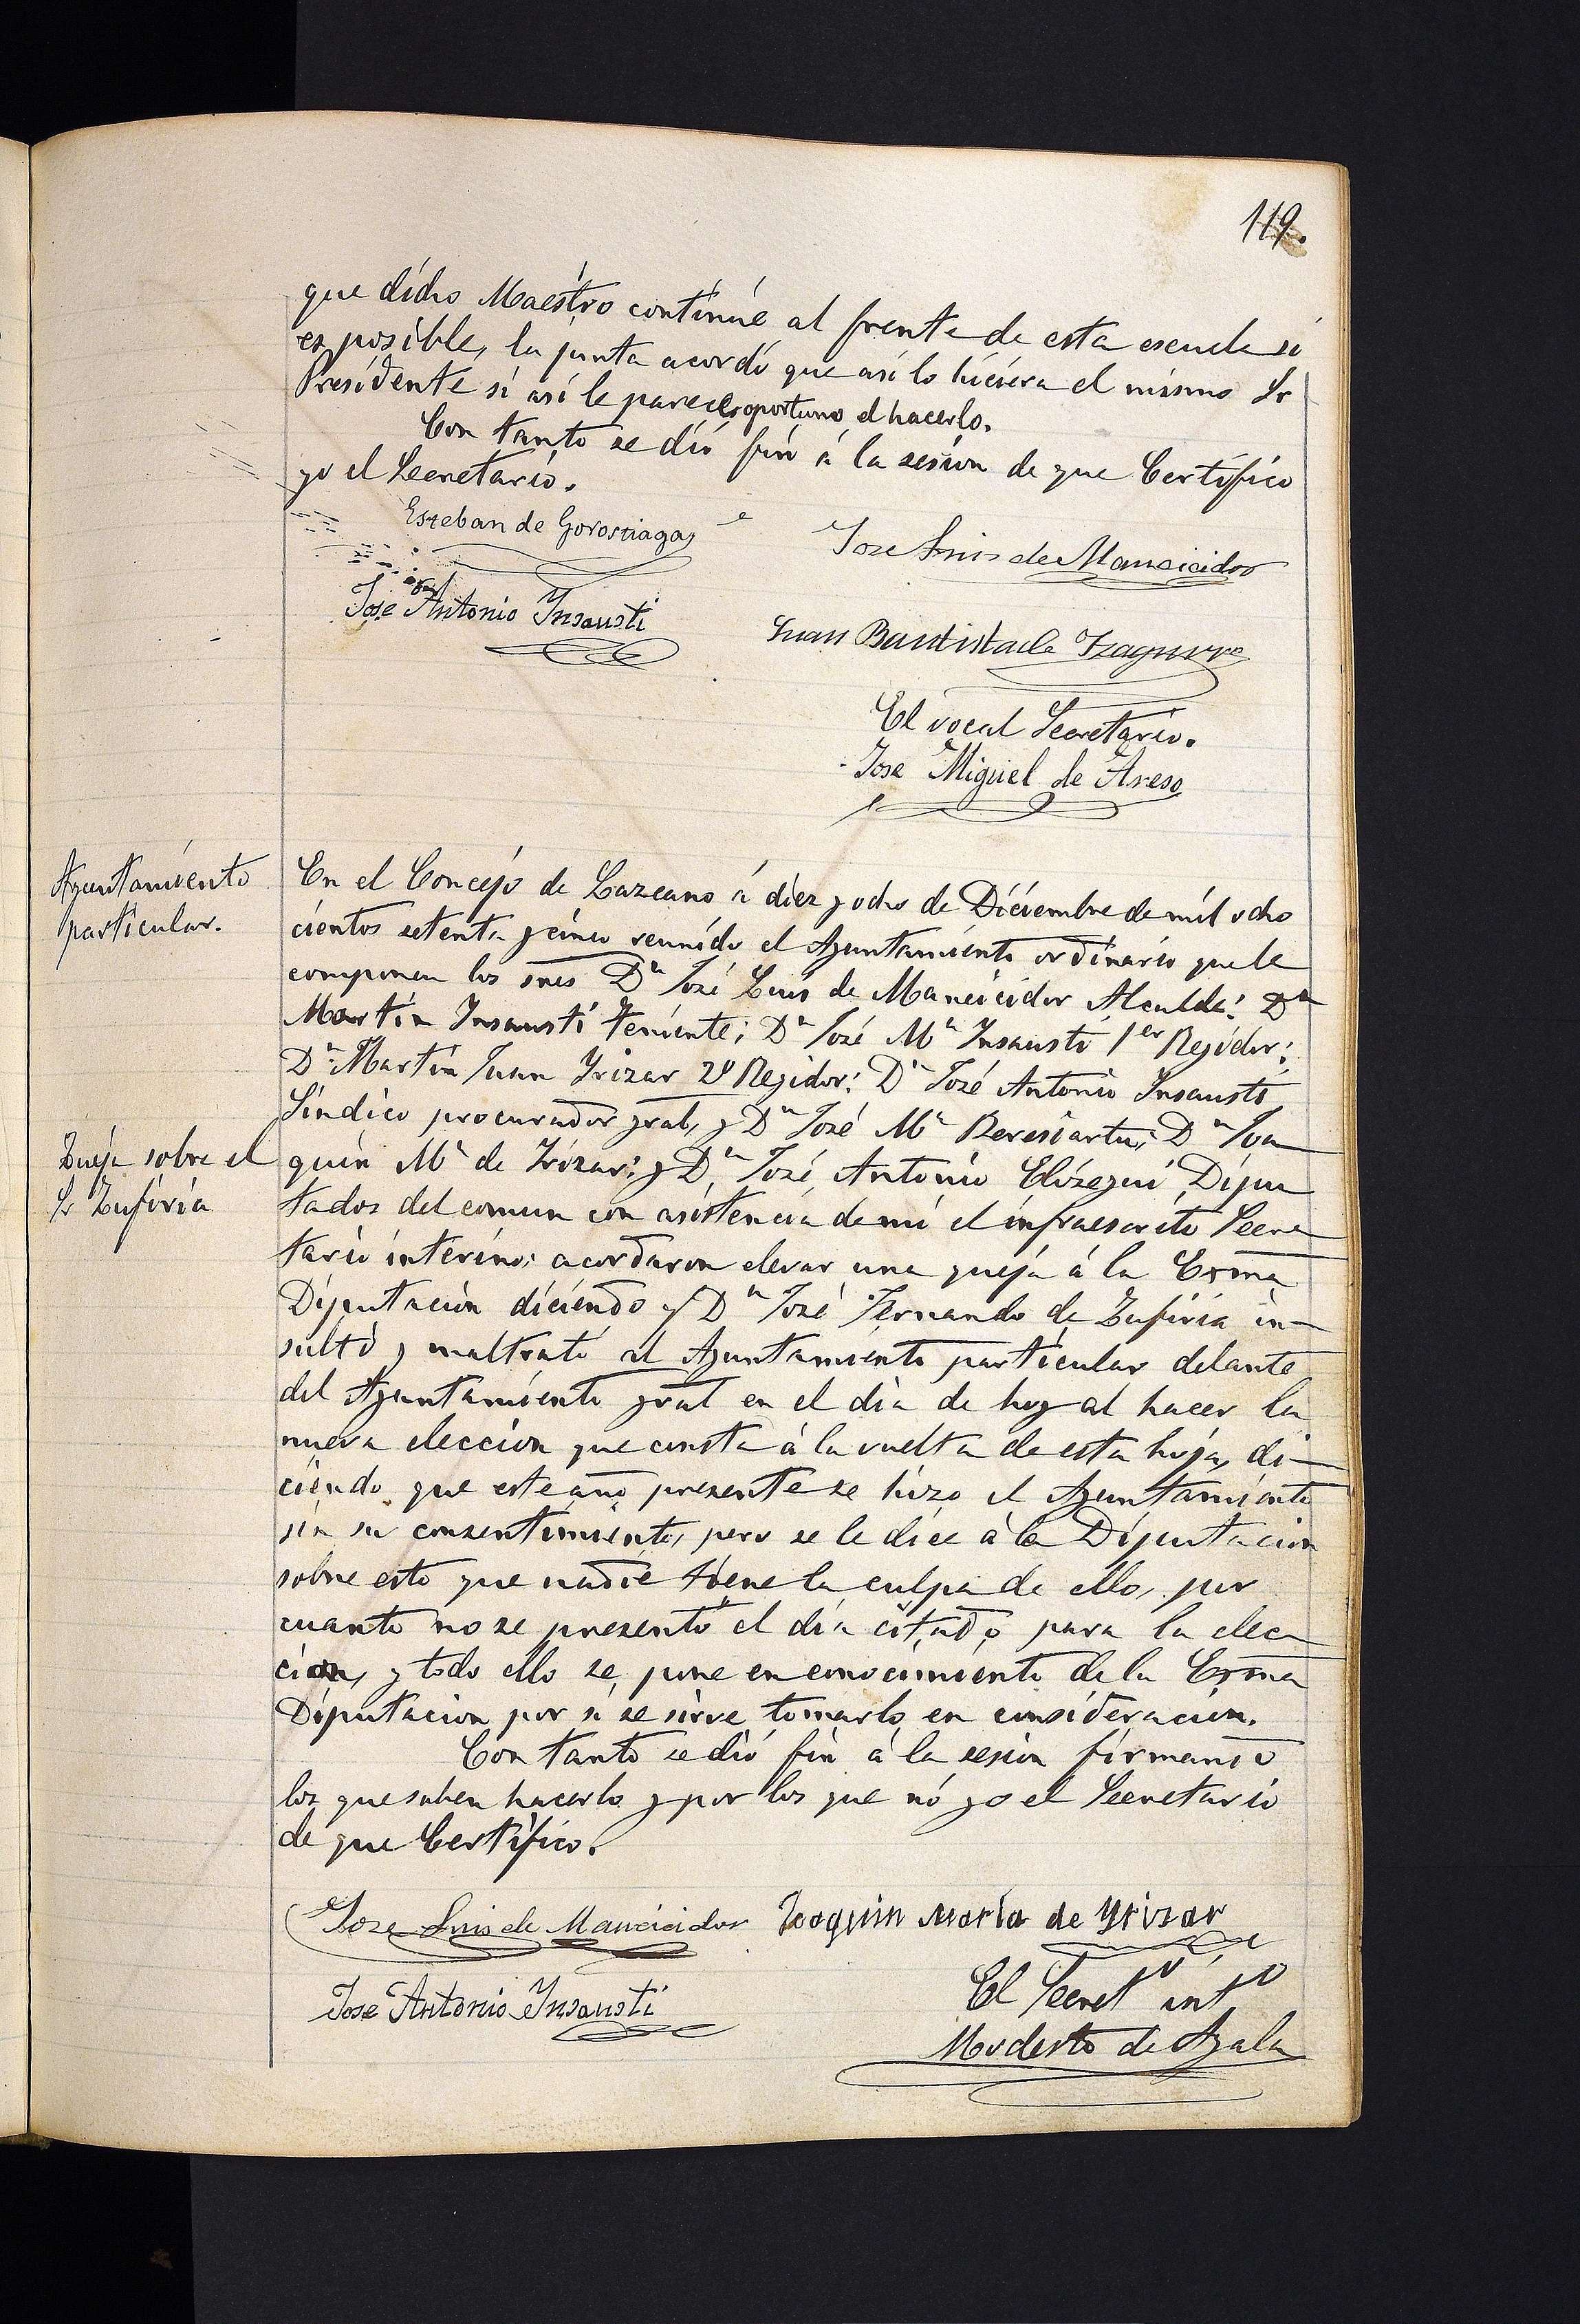 119.
que dicho Maestro continúe al frente de esta escuela si
es posible, la junta acordó que asi lo hiciera el mismo Sr
Presidente si asi le parece oportuno el hacerlo.
Con tanto se dió fin á la sesion de que Certifico
yo el Secretario.
Esteban de Gorostiaga
Jose Luis de Mancicidor
Jose Antonio Insausti
Juan Bautista de Yzaguirre
El vocal Secretario.
Jose Miguel de Areso
Ayuntamiento
particular.
En el Concejo de Lazcano á diez y ocho de Diciembre de mil ocho
cientos setenta y cinco reunido el Ayuntamiento ordinario que le
componen los sres Dn José Luis de Mancicidor Alcalde: Dn
Martin Insausti Teniente; Dn José Ma Insausti 1er Regidor:
Dn Martin Juan Yrizar 2º Regidor: Dn José Antonio Insausti
Sindico procurador gral, y Dn José Ma Beresiartu; Dn Joa
Queja sobre el
Sr Zufiria
quin Ma de Yrizar: y Dn José Antonio Elósegui Dipu
tados del comun con asistencia de mi el infraescrito Secre
tario interino: acordaron elevar una queja á la Exma
Diputacion diciendo q Dn José Fernando de Zufiria in-
sultó y maltrató al Ayuntamiento particular delante
del Ayuntamiento gral en el dia de hoy al hacer la
nueva eleccion que consta á la vuelta de esta hoja, di-
ciendo que este año presente se hizo el Ayuntamiento
sin su consentimiento, pero se le dice á la Diputacion
sobre esto que nadie tiene la culpa de ello, por
cuanto no se presentó el dia citado para la elec
cion, y todo ello se pone en conocimiento de la Exma
Diputacion por si se sirve tomarlo en consideracion.
Con tanto se dió fin á la sesion firmando
los que saben hacerlo y por los que nó yo el Secretario
de que Certifico.
Jose Luis de Mancicidor
Joaquin Maria de Yrizar
Jose Antonio Insausti
El Secreto into
Modesto de Ayala